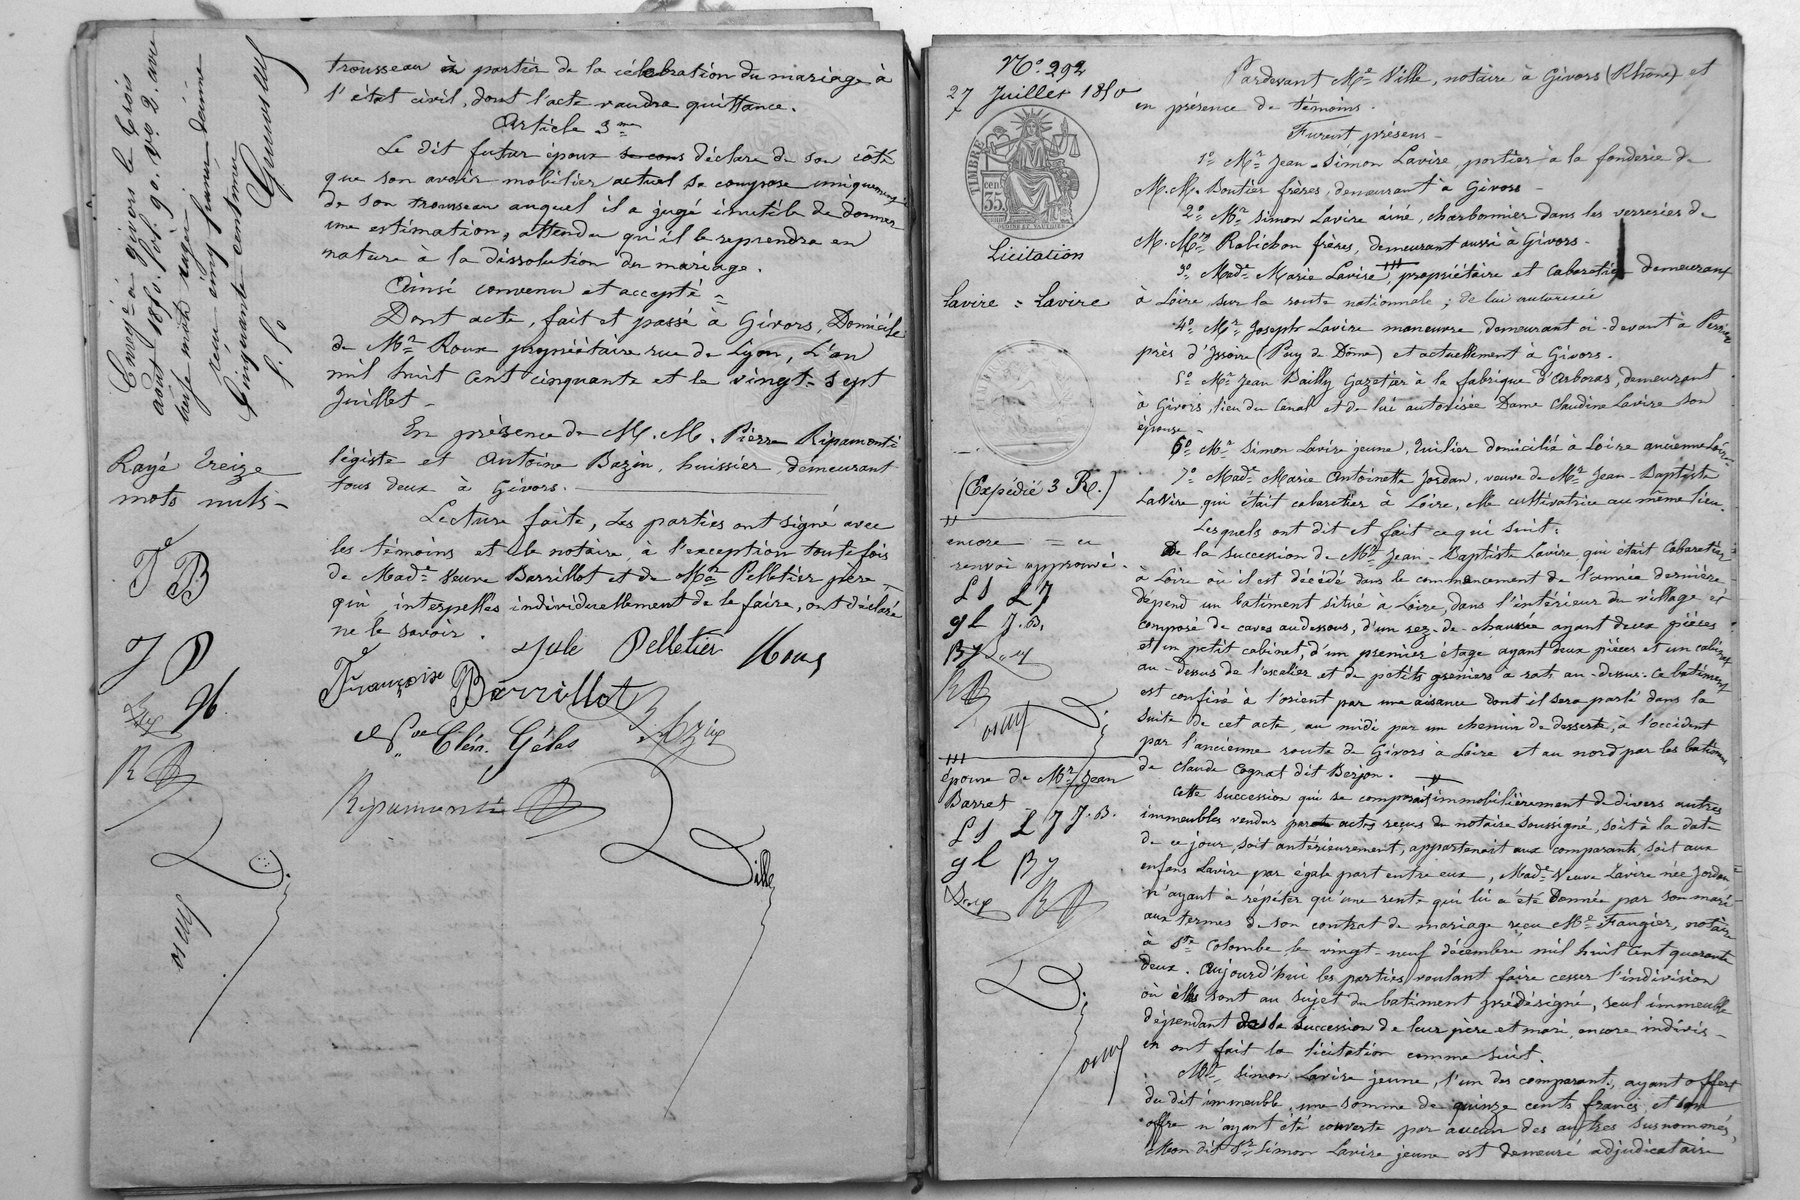 Enregé à Givors le trois
août 1850. fol. 90. Vo. 2. avec
treize mots rayés
reçu cinq francs dixième
cinquante centimes
Rayé treize
mots nuls -
F B
J P
R
trousseau à partir de la célébration du mariage à
l'état civil, dont l'acte vaudra quittance.
Article 3me
Le dit futur époux déclare de son côté
que son avoir mobilier actuel se compose uniquement
de son trousseau auquel il a jugé inutile de donner
une estimation, attendu qu'il le reprendra en
nature à la dissolution du mariage.
Ainsi convenu et accepté =
Dont acte, fait et passé à Givors, Domicile
de Mr. Roux propriétaire rue de Lyon, L'an
mil huit cent cinquante et le vingt-sept
Juillet -
En présence de M. M. Pierre Ripamonti
légiste et Antoine Bazin, huissier, demeurant
tous deux à Givors.
Lecture faite, les parties ont signé avec
les témoins et le notaire, à l'exception toutefois
de Made Veuve Barrillot et de Mr Pelletier père
qui, interpellés individuellement de le faire, ont déclaré
ne le savoir.
Jule Pelletier Roux
Françoise Barrillot
Ripamonti
Ville
No. 292
27 Juillet 1850
TIMBRE
35
cen
Licitation
Lavire = Lavire
(Expédié 3 R.)
encore =
renvoi approuvé.
LS LJ
gl J.B.
BJ
épouse de Mr. Jean
Barret
LS LJ J.B.
gl BJ
Pardevant Me Ville, notaire à Givors (Rhône) et
en présence de témoins.
Furent présens -
1o Mr Jean-Simon Lavire, portier à la fonderie de
M.M. Boutier frères, demeurant à Givors -
2o Mr Simon Lavire aîné, charbonnier dans les verreries de
M.Mrs Robichon frères, demeurant aussi à Givors -
3o Made Marie Lavire, propriétaire et cabaretier demeurant
à Loire, sur la route nationale ; de lui autorisée
4o Mr Joseph Lavire manœuvre, demeurant ci-devant à
près d'Issoire (Puy de Dôme) et actuellement à Givors.
5o Mr Jean Bailly Gazetier à la fabrique d'Arboras, demeurant
à Givors, lieu du Canal et de lui autorisée Dame Claudine Lavire son
épouse -
6o Mr Simon Lavire jeune, tuilier domicilié à Loire
7o Made Marie Antoinette Jordan, veuve de Mr Jean-Baptiste
Lavire, qui était cabaretier à Loire, elle cultivatrice au même lieu.
Lesquels ont dit et fait ce qui suit :
De la succession de Mr Jean-Baptiste Lavire qui était Cabaretier
à Loire où il est décédé dans le commencement de l'année dernière
dépend un batiment situé à Loire, dans l'intérieur du village et
composé de caves au dessous, d'un rez-de-chaussée ayant deux pièces
et un petit cabinet, d'un premier étage ayant deux pièces et un cabinet
au-dessus de l'escalier et de petits greniers à rats au-dessus. Ce batiment
est confiné à l'orient par une aisance dont il sera parlé dans la
suite de cet acte, au midi par un chemin de desserte, à l'occident
par l'ancienne route de Givors à Loire et au nord par les batimens
de Claude Cognat dit Berjon.
Cette succession qui se composait immobilièrement de divers autres
immeubles vendus par actes reçus du notaire soussigné, soit à la date
de ce jour, soit antérieurement, appartenait aux comparants soit aux
enfans Lavire par égale part entre eux, Made Veuve Lavire née Jordan
n'ayant à répéter qu'une rente qui lui a été donnée par son mari
aux termes de son contrat de mariage reçu Me Faugier, notaire
à Ste Colombe le vingt-neuf décembre mil huit cent quarante
deux. Aujourd'hui les parties voulant faire cesser l'indivision
où elles sont au sujet du batiment prédésigné, seul immeuble
dépendant de la succession de leur père et mari, encore indivis -
en ont fait la licitation comme suit.
Mr. Simon Lavire jeune, l'un des comparant, ayant offert
du dit immeuble, une somme de quinze cents francs et son
offre n'ayant été couverte par aucun des autres susnommés,
Mon dit Sr Simon Lavire jeune est demeuré adjudicataire